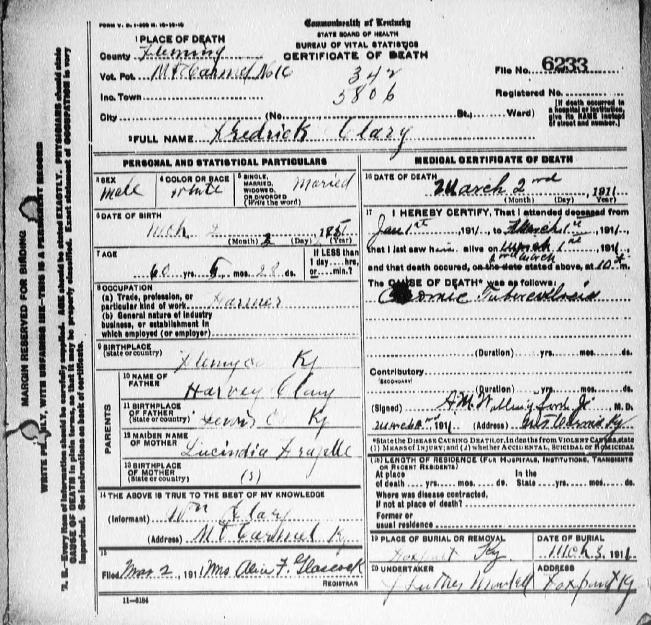 FORM V. S. 1-
Commonwealth of Kentucky
STATE BOARD OF HEALTH
BUREAU OF VITAL STATISTICS
CERTIFICATE OF DEATH
1 PLACE OF DEATH
County Fleming
Vot. Pct. Mt Carmel No 16
Inc. Town
City (No. St., Ward)
342
5806
File No. 6233
Registered No.
[If death occurred in a hospital or institution, give its NAME instead of street and number.]
2 FULL NAME Fredrick Clary
PERSONAL AND STATISTICAL PARTICULARS
3 SEX Male
4 COLOR OR RACE White
5 SINGLE, MARRIED, WIDOWED, OR DIVORCED (Write the word) Married
6 DATE OF BIRTH
Mch 2
(Month) (Day) (Year)
7 AGE
60 yrs. mos. 28 ds.
If LESS than 1 day hrs. or min.?
8 OCCUPATION
(a) Trade, profession, or particular kind of work Farmer
(b) General nature of industry business, or establishment in which employed (or employer)
9 BIRTHPLACE
(State or country) Fleming Co Ky
PARENTS
10 NAME OF FATHER Harvey Clary
11 BIRTHPLACE OF FATHER (State or country) Lewis C Ky
12 MAIDEN NAME OF MOTHER Lucindia
13 BIRTHPLACE OF MOTHER (State or country)
14 THE ABOVE IS TRUE TO THE BEST OF MY KNOWLEDGE
(Informant) Wm Clary
(Address) Mt Carmel Ky
15
Filed Mar 2, 1911 Mrs Alice F. Glascock
REGISTRAR
11-5184
MEDICAL CERTIFICATE OF DEATH
16 DATE OF DEATH
March 2nd 1911
(Month) (Day) (Year)
17 I HEREBY CERTIFY, That I attended deceased from
Jan 1st, 191 , to March 1st, 191 ,
that I last saw him alive on March 1st, 191 ,
and that death occured, on the date stated above, at 10 m.
The CAUSE OF DEATH* was as follows:
Chronic Tuberculosis
(Duration) yrs. mos. ds.
Contributory
(SECONDARY)
(Duration) yrs. mos. ds.
(Signed) M. D.
March, 1911 (Address) Mt Carmel, Ky
*State the DISEASE CAUSING DEATH, or, in deaths from VIOLENT CAUSES, state (1) MEANS OF INJURY; and (2) whether ACCIDENTAL, SUICIDAL or HOMICIDAL
18 LENGTH OF RESIDENCE (FOR HOSPITALS, INSTITUTIONS, TRANSIENTS OR RECENT RESIDENTS)
At place of death yrs. mos. ds. In the State yrs. mos. ds.
Where was disease contracted, if not at place of death?
Former or usual residence
19 PLACE OF BURIAL OR REMOVAL
Foxport Ky
DATE OF BURIAL
Mch 3, 1911
20 UNDERTAKER
J Luther
ADDRESS
Foxport Ky
MARGIN RESERVED FOR BINDING
WRITE PLAINLY, WITH UNFADING INK—THIS IS A PERMANENT RECORD
N. B.—Every item of information should be carefully supplied. AGE should be stated EXACTLY. PHYSICIANS should state
CAUSE OF DEATH in plain terms, so that it may be properly classified. Exact statement of OCCUPATION is very
important. See instructions on back of certificate.